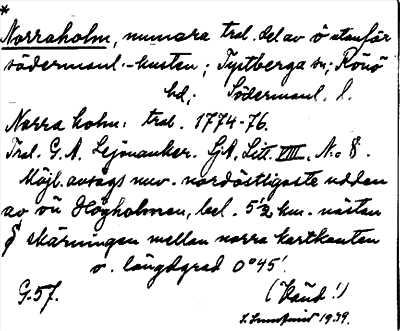 *
Norraholm, numera tral. del av ö utanför
södermanl.-kusten; Tystberga sn; Rönö
hd; Södermanl. l.
Norra holm: tral. 1774-76.
Tral. G. A. Lejonanker. GA, Litt. VIII, No 8.
Möjl. avsågs nuv. nordöstligaste udden
av ön Högholmen, bel. 5 1/2 km. nästan
S skärningen mellan norra kartkanten
o. längdgrad 0°45'.
G:57. (Känd!)
1939.